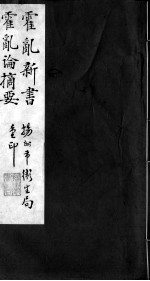 霍亂新書
霍亂論摘要
揚州市衛生局
重印